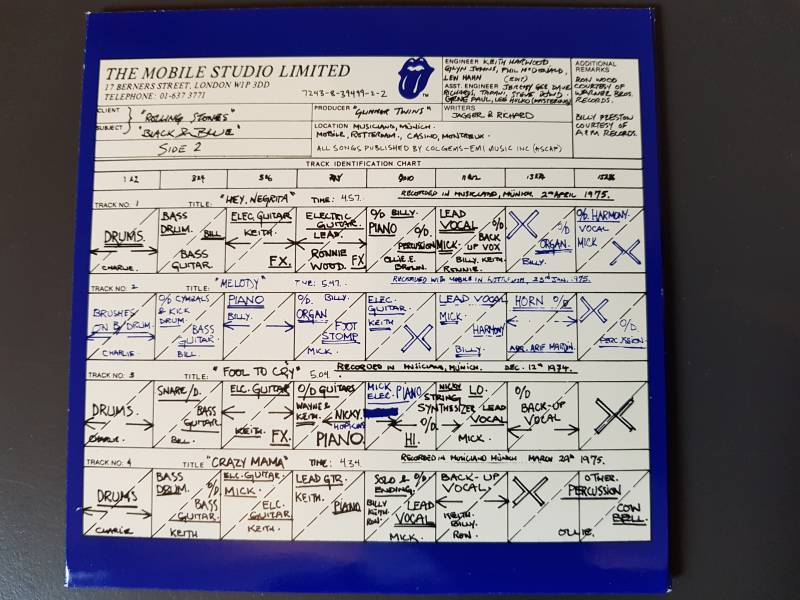 THE MOBILE STUDIO LIMITED
17 BERNERS STREET, LONDON W1P 3DD
TELEPHONE: 01-637 3771
7243-8-39499-2-2
TM
ENGINEER KEITH HARWOOD
GLYN JOHNS, PHIL McDONALD,
LEW HAHN (EDIT)
ASST. ENGINEER JEREMY GEE DAVE
RICHARDS, TAPANI, STEVE DOWD,
GENE PAUL, LEE HULKO (MASTERING)
ADDITIONAL
REMARKS
RON WOOD
COURTESY OF
WARNER BROS.
RECORDS.
BILLY PRESTON
COURTESY OF
A & M RECORDS.
CLIENT "ROLLING STONES"
SUBJECT "BLACK & BLUE"
SIDE 2
PRODUCER "GLIMMER TWINS"
WRITERS
JAGGER & RICHARD
LOCATION MUSICLAND, MÜNICH.
MOBILE, ROTTERDAM., CASINO, MONTREUX.
ALL SONGS PUBLISHED BY COLGEMS-EMI MUSIC INC (ASCAP)
TRACK IDENTIFICATION CHART
1 & 2 3 & 4 5 & 6 11 & 12 13 & 14 15 & 16
TRACK NO. 1 TITLE: "HEY. NEGRITA" TIME: 4.57. RECORDED IN MUSICLAND, MÜNICH 2nd APRIL 1975.
DRUMS.
CHARLIE.
BASS
DRUM. BILL
BASS
GUITAR.
ELEC GUITAR
KEITH.
FX.
ELECTRIC
GUITAR.
LEAD.
RONNIE
WOOD. FX
O/D BILLY.
PIANO O/D.
PERCUSSION
OLLIE. E.
BROWN.
LEAD
VOCAL O/D
MICK. BACK
UP VOX
BILLY. KEITH.
RONNIE.
O/D
ORGAN.
BILLY.
O/D. HARMONY.
VOCAL
MICK
TRACK NO. 2 TITLE: "MELODY" TIME: 5.47. RECORDED WITH MOBILE IN ROTTERDAM, 23rd JAN. 1975.
BRUSHES
ON B/DRUM.
CHARLIE.
O/D CYMBALS
& KICK
DRUM.
BASS
GUITAR.
BILL.
PIANO
BILLY.
O/D. BILLY.
ORGAN
FOOT
STOMP
MICK.
ELEC.
GUITAR.
KEITH
LEAD VOCAL
MICK.
HARMONY
BILLY.
HORN O/D
ARR. ARIF MARDIN.
O/D.
PERCUSSION.
TRACK NO. 3 TITLE: "FOOL TO CRY" 5.04. RECORDED IN MUSICLAND, MÜNICH. DEC. 12th 1974.
DRUMS.
CHARLIE.
SNARE/D.
BASS
GUITAR.
BILL.
ELC. GUITAR
KEITH. FX.
O/D GUITARS
WAYNE &
KEITH. NICKY.
HOPKINS
PIANO.
MICK
ELEC. PIANO
O/D.
HI.
NICKY LO.
STRING
SYNTHESIZER
LEAD
VOCAL
MICK.
O/D
BACK-UP
VOCAL
TRACK NO. 4 TITLE "CRAZY MAMA" TIME: 4.34. RECORDED IN MUSICLAND MÜNICH MARCH 29th 1975.
DRUMS
CHARLIE
BASS
DRUM. O/D.
BASS
GUITAR.
KEITH
ELC. GUITAR.
MICK.
ELC.
GUITAR
KEITH.
LEAD GTR.
KEITH.
PIANO
SOLO &
ENDING. O/D
BILLY
KEITH
RON.
LEAD
VOCAL
MICK.
BACK-UP
VOCAL.
KEITH.
BILLY.
RON.
OLLIE.
OTHER.
PERCUSSION
COW
BELL.